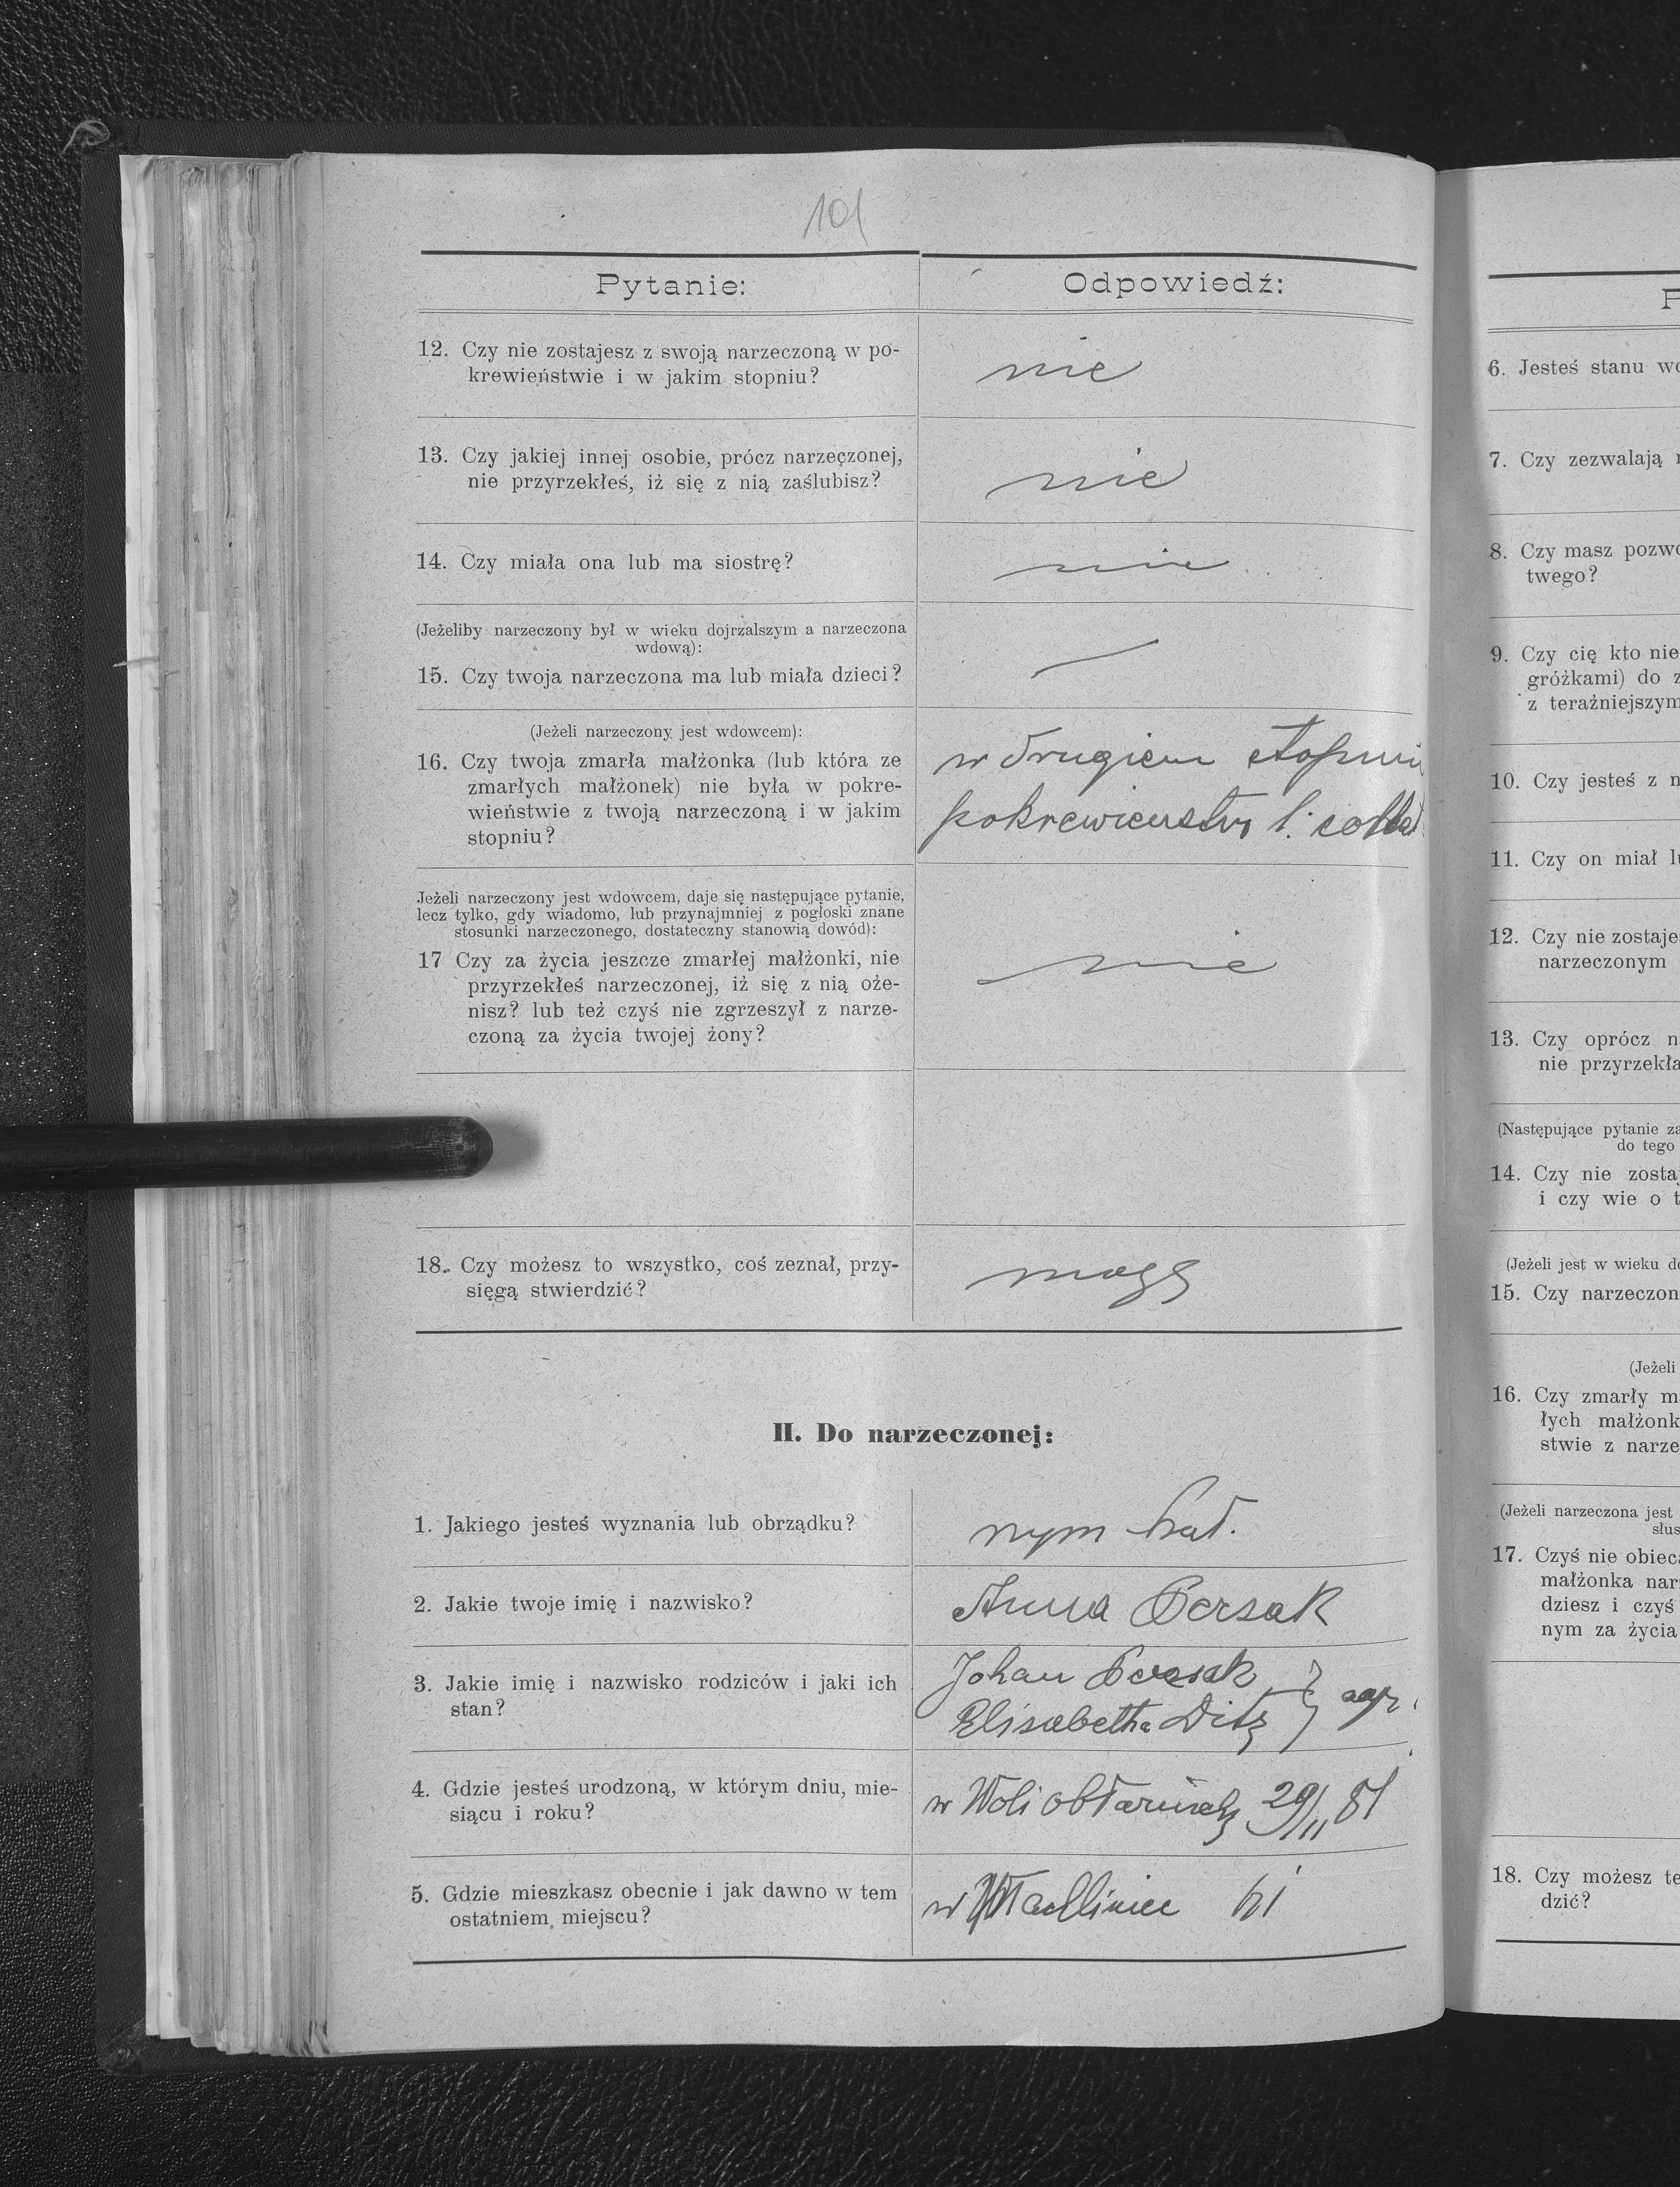 101
Pytanie:
Odpowiedź:
12. Czy nie zostajesz z swoją narzeczoną w po-
krewieństwie i w jakim stopniu?
nie
13. Czy jakiej innej osobie, prócz narzęczonej,
nie przyrzekłeś, iż się z nią zaślubisz?
nie
14. Czy miała ona lub ma siostrę?
nie
(Jeżeliby narzeczony był w wieku dojrzalszym a narzeczona
wdową):
15. Czy twoja narzeczona ma lub miała dzieci?
(Jeżeli narzeczony jest wdowcem):
16. Czy twoja zmarła małżonka (lub która ze
zmarłych małżonek) nie była w pokre-
wieństwie z twoją narzeczoną i w jakim
stopniu?
w drugiem stopniu
pokrewieństw l. collat
Jeżeli narzeczony jest wdowcem, daje się następujące pytanie,
lecz tylko, gdy wiadomo, lub przynajmniej z pogłoski znane
stosunki narzeczonego, dostateczny stanowią dowód):
17 Czy za życia jeszcze zmarłej małżonki, nie
przyrzekłeś narzeczonej, iż się z nią oże-
nisz? lub też czyś nie zgrzeszył z narze-
czoną za życia twojej żony?
nie
18. Czy możesz to wszystko, coś zeznał, przy-
sięgą stwierdzić?
mogę
II. Do narzeczonej:
1. Jakiego jesteś wyznania lub obrządku?
rzym kat.
2. Jakie twoje imię i nazwisko?
Anna Persak
3. Jakie imię i nazwisko rodziców i jaki ich
stan?
Johan Persak
Elisabetha Ditz } agr.
4. Gdzie jesteś urodzoną, w którym dniu, mie-
siącu i roku?
w Woli 29/11 81
5. Gdzie mieszkasz obecnie i jak dawno w tem
ostatniem miejscu?
w
P
6. Jesteś stanu wo
7. Czy zezwalają
8. Czy masz pozwo
twego?
9. Czy cię kto nie
gróżkami) do z
z teraźniejszym
10. Czy jesteś z n
11. Czy on miał lu
12. Czy nie zostaje
narzeczonym
13. Czy oprócz n
nie przyrzekła
(Następujące pytanie za
do tego
14. Czy nie zosta
i czy wie o t
(Jeżeli jest w wieku do
15. Czy narzeczon
(Jeżeli
16. Czy zmarły m
łych małżonk
stwie z narze
(Jeżeli narzeczona jest
słus
17. Czyś nie obieca
małżonka nar
dziesz i czyś
nym za życia
18. Czy możesz te
dzić?